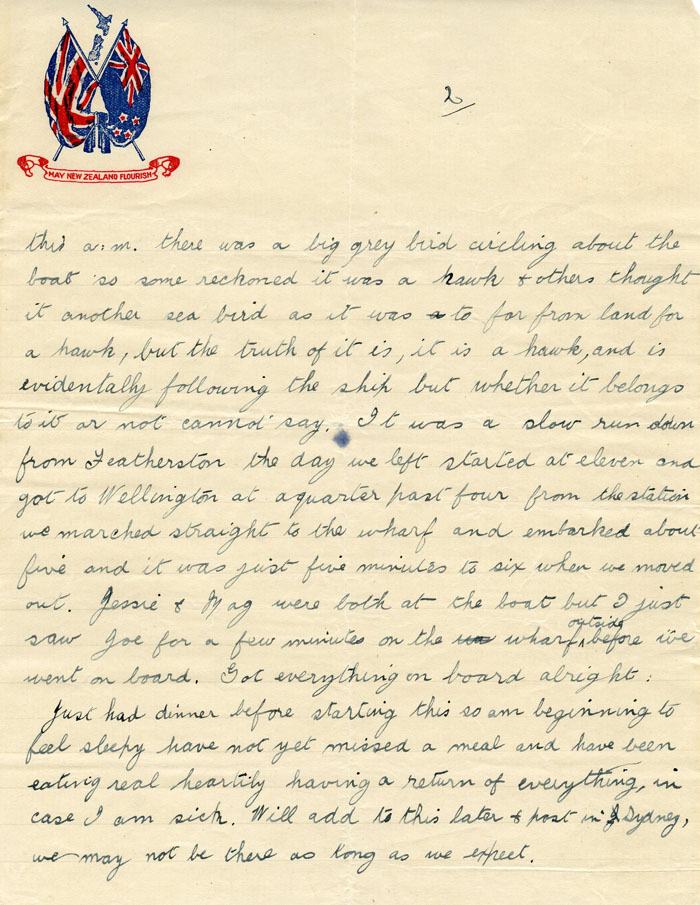 MAY NEW ZEALAND FLOURISH
2
this a:m. there was a big grey bird circling about the
boat so some reckoned it was a hawk & others thought
it another sea bird as it was to far from land for
a hawk, but the truth of it is, it is a hawk, and is
evidentally following the ship but whether it belongs
to it or not cannot say. It was a slow run down
from Featherston the day we left started at eleven and
got to Wellington at a quarter past four from the station
we marched straight to the wharf and embarked about
five and it was just five minutes to six when we moved
out. Jessie & Mag were both at the boat but I just
saw Joe for a few minutes on the wharf outside before we
went on board. Got everything on board alright:
Just had dinner before starting this so am beginning to
feel sleepy have not yet missed a meal and have been
eating real heartily having a return of everything, in
case I am sick. Will add to this later & post in Sydney,
we may not be there as long as we expect.